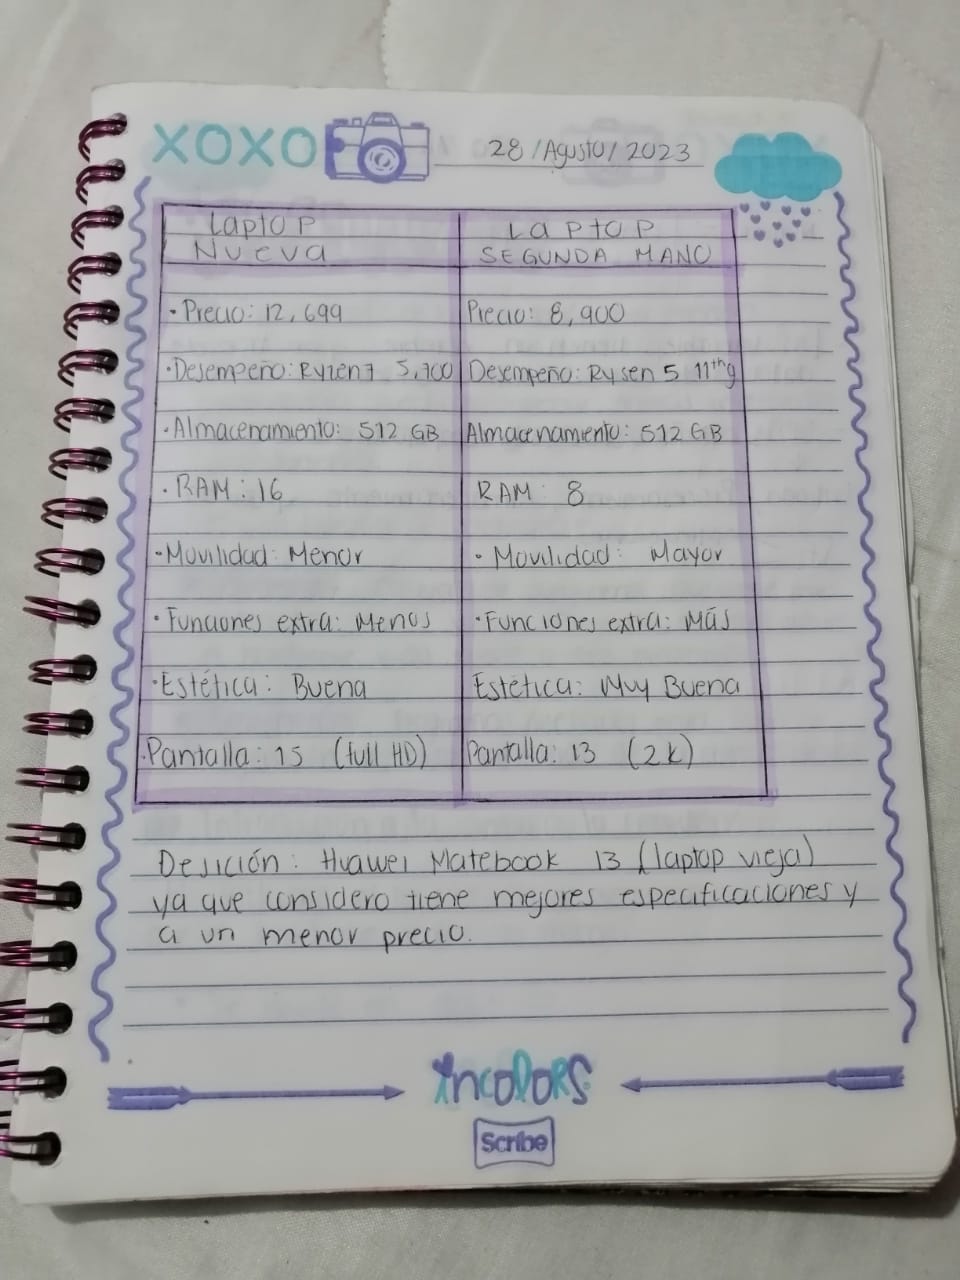 XOXO
28/Agosto/2023
Laptop Nueva
Laptop SEGUNDA MANO
· Precio: 12,699
Precio: 8,900
· Desempeño: Ryzen 7 5,700
Desempeño: Rysen 5 11thg
· Almacenamiento: 512 GB
Almacenamiento: 512 GB
· RAM: 16
RAM: 8
· Movilidad: Menor
· Movilidad: Mayor
· Funciones extra: Menos
· Funciones extra: Más
· Estética: Buena
Estética: Muy Buena
· Pantalla: 15 (full HD)
Pantalla: 13 (2k)
Desición: Huawei Matebook 13 (laptop vieja)
ya que considero tiene mejores especificaciones y
a un menor precio.
incolors
Scribe